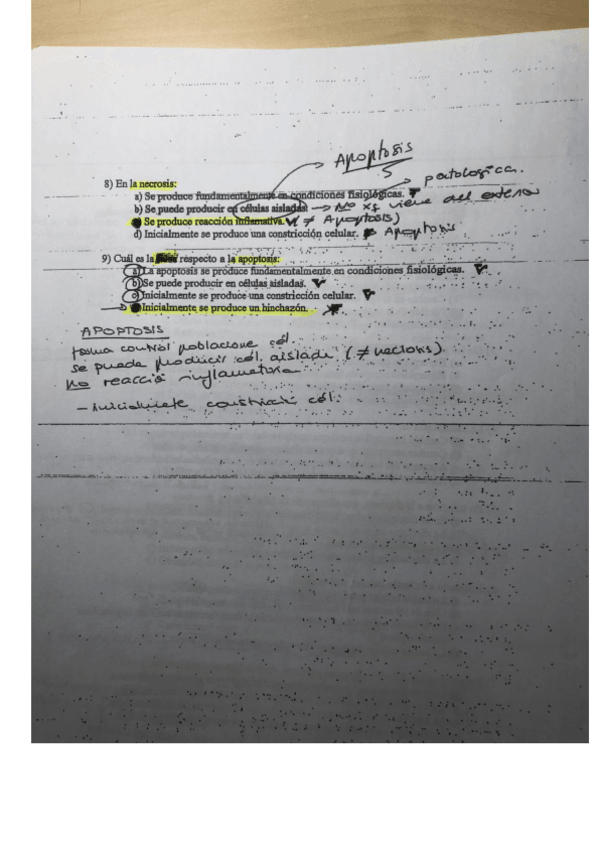 Apoptosis
patologica.
8) En la necrosis:
a) Se produce fundamentalmente en condiciones fisiológicas.
b) Se puede producir en células aisladas. → No xq viene del exterior
Se produce reacción inflamativa. V (≠ Apoptosis)
d) Inicialmente se produce una constricción celular. Apoptosis
9) Cuál es la respecto a la apoptosis:
a) La apoptosis se produce fundamentalmente en condiciones fisiológicas. V
b) Se puede producir en células aisladas. V
c) Inicialmente se produce una constricción celular. V
Inicialmente se produce un hinchazón.
APOPTOSIS
forma control poblacione cél.
se puede producir cél. aislada (≠ necrosis)
no reacció inflamatoria
- inicialmente constricción cél.